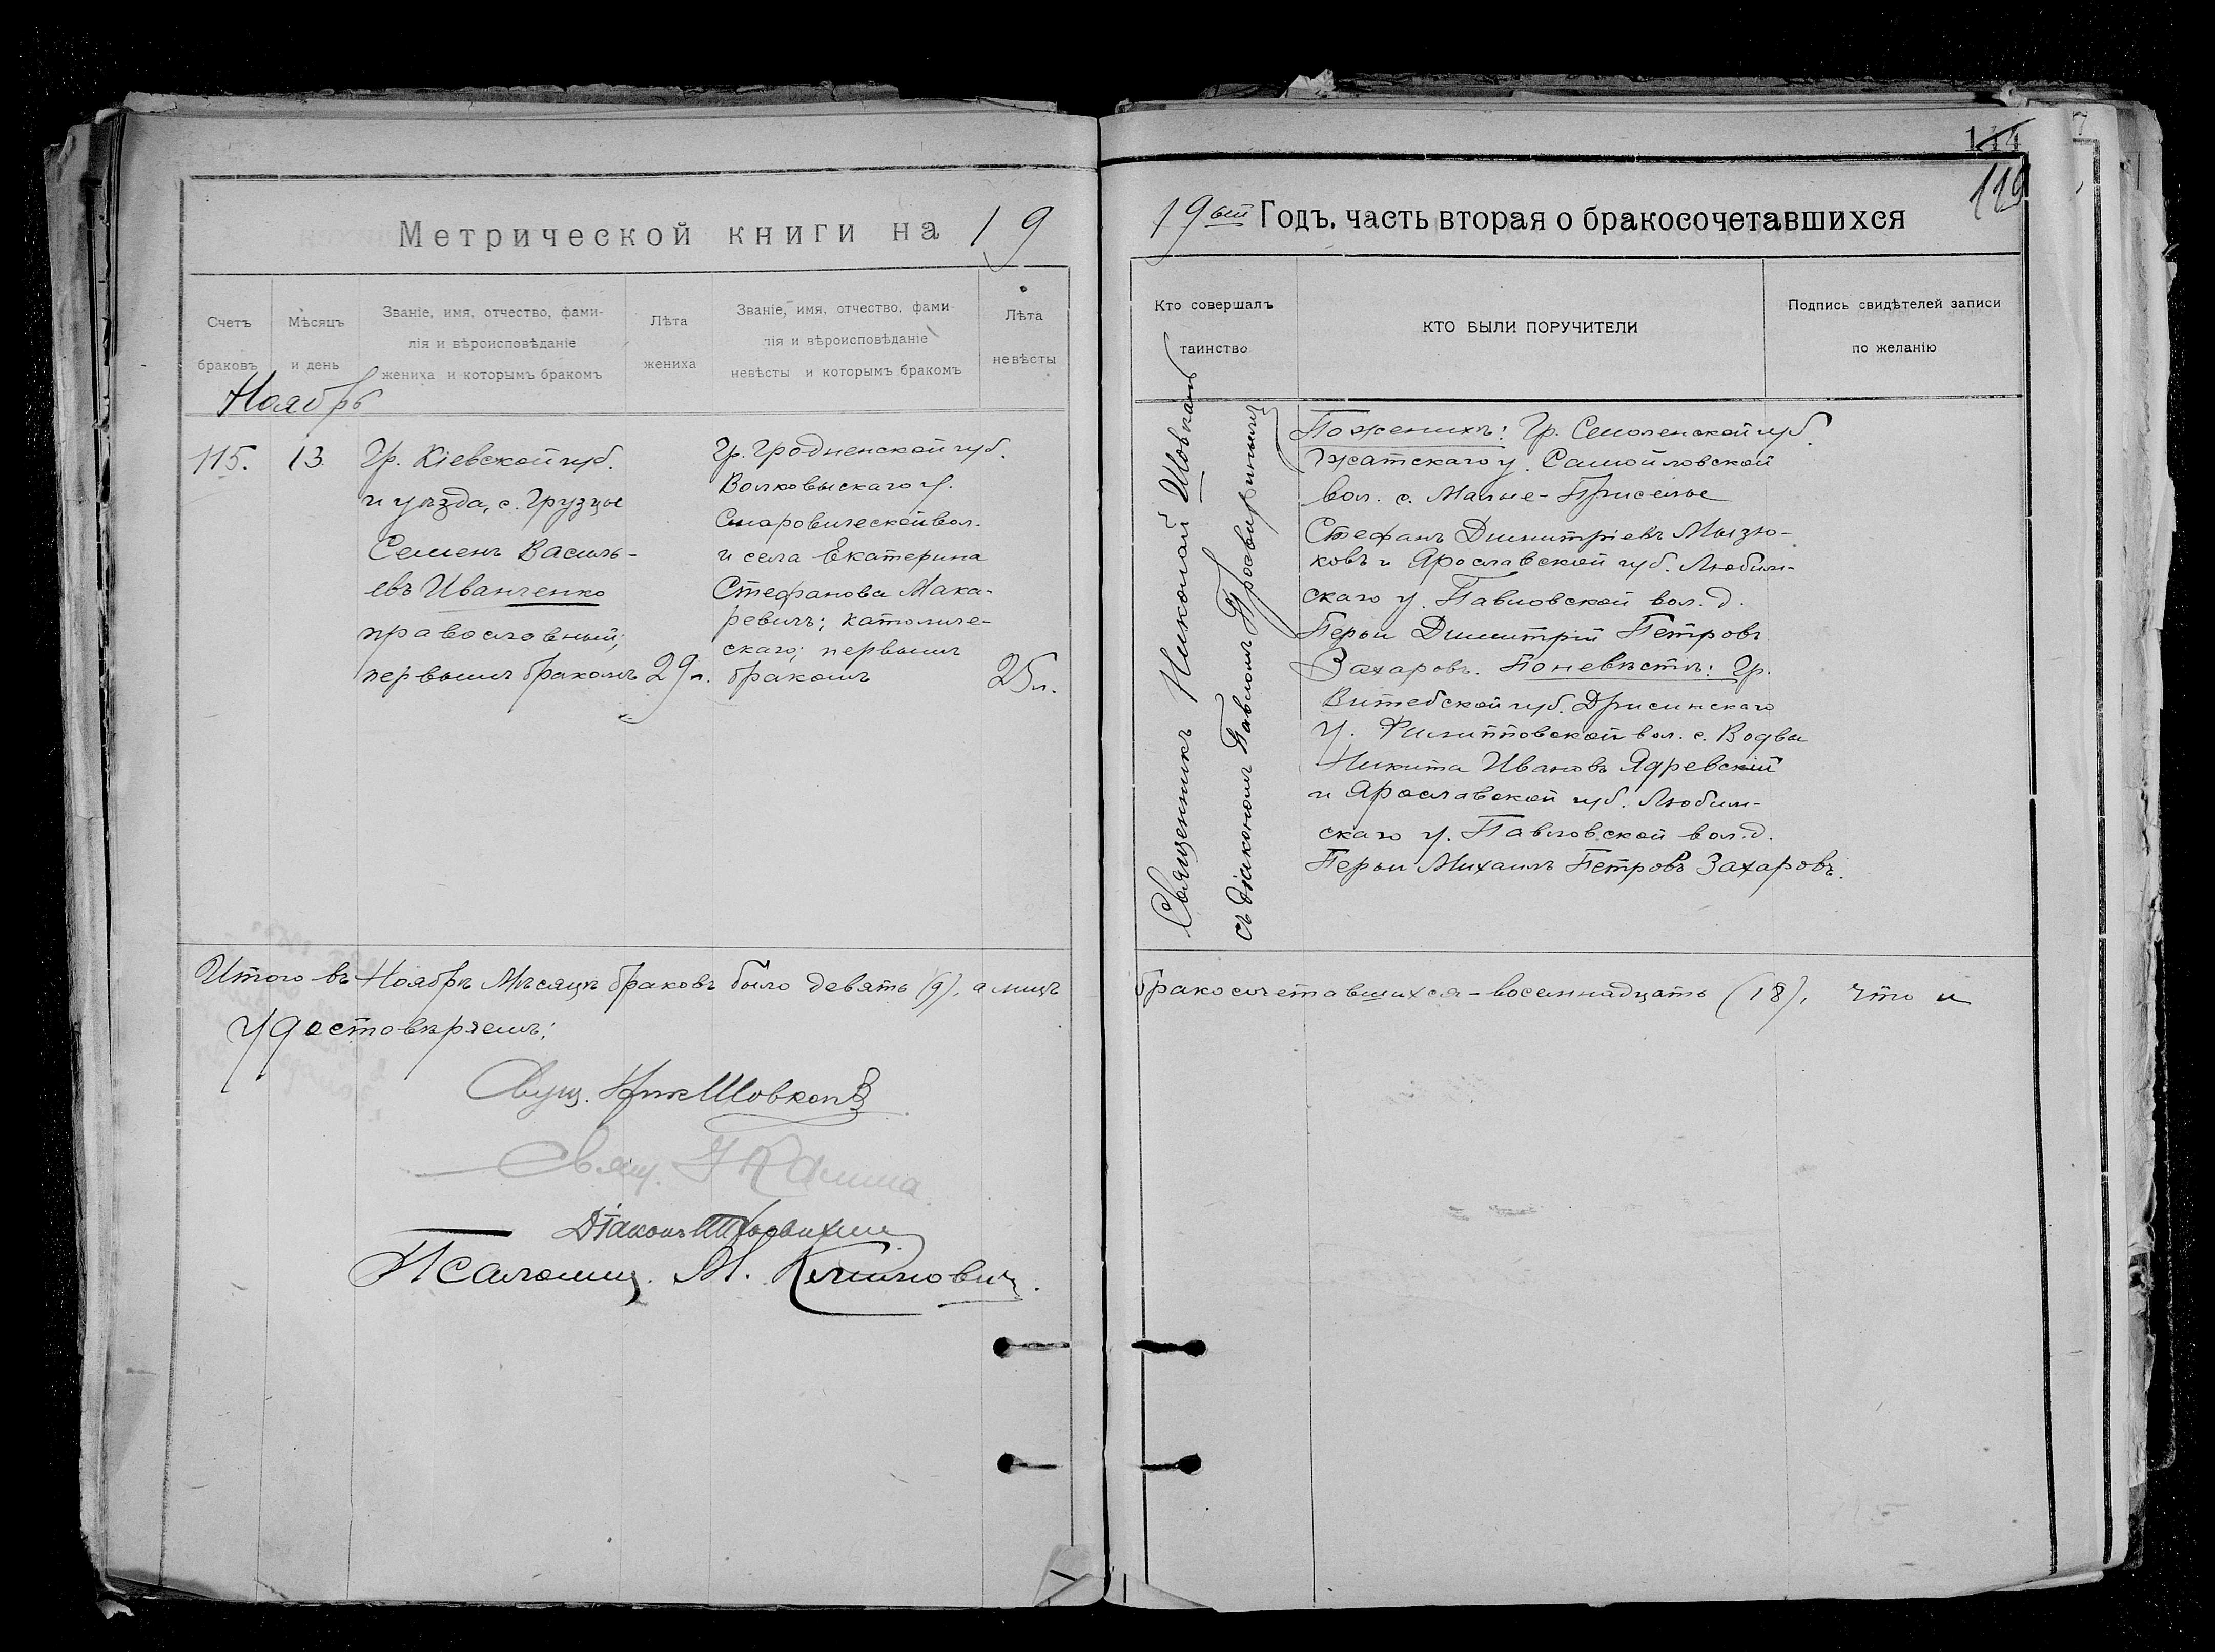 144
119
Метрической книги на 19
19ый Годъ, часть вторая о бракосочетавшихся
Счетъ браковъ
Мѣсяцъ и день
Званіе, имя, отчество, фами-
лія и вѣроисповѣданіе
жениха и которымъ бракомъ
Лѣта жениха
Званіе, имя, отчество, фами-
лія и вѣроисповѣданіе
невѣсты и которымъ бракомъ
Лѣта невѣсты
Кто совершалъ
таинство
КТО БЫЛИ ПОРУЧИТЕЛИ
Подпись свидѣтелей записи
по желанію
Ноябрь
115. 13
Гр. Кіевской губ.
и уѣзда, с. Грузцое
Семенъ Василь-
евъ Иванченко
православный;
первымъ бракомъ
29 л.
Гр. Гродненской губ.
Волковыскаго у.
вол.
и села Екатерина
Стефанова Мака-
ревичъ; католиче-
скаго; первымъ
бракомъ
25 л.
Священникъ Николай Шовкань
съ діакономъ Павломъ
По женихѣ: Гр. Смоленской губ.
Гжатскаго у. Самойловской
вол. с. Малые-Приселье
Стефанъ Димитріевъ Мызю-
ковъ и Ярославской губ. Любим-
скаго у. Павловской вол. д.
Перьи Димитрій Петровъ
Захаровъ. По невѣстѣ: Гр.
Витебской губ. Дриссинскаго
у. Филипповской вол. с. Водва
Никита Ивановъ Ядревскій
и Ярославской губ. Любим-
скаго у. Павловской вол. д.
Перьи Михаилъ Петровъ Захаровъ.
Итого въ Ноябрѣ Мѣсяцѣ браковъ было девять (9), а лицъ
бракосочетавшихся - восемнадцать (18), что и
удостовѣряемъ:
Свящ. Ник Шовкан
Свящ.
Діаконъ
Псаломщ. М.